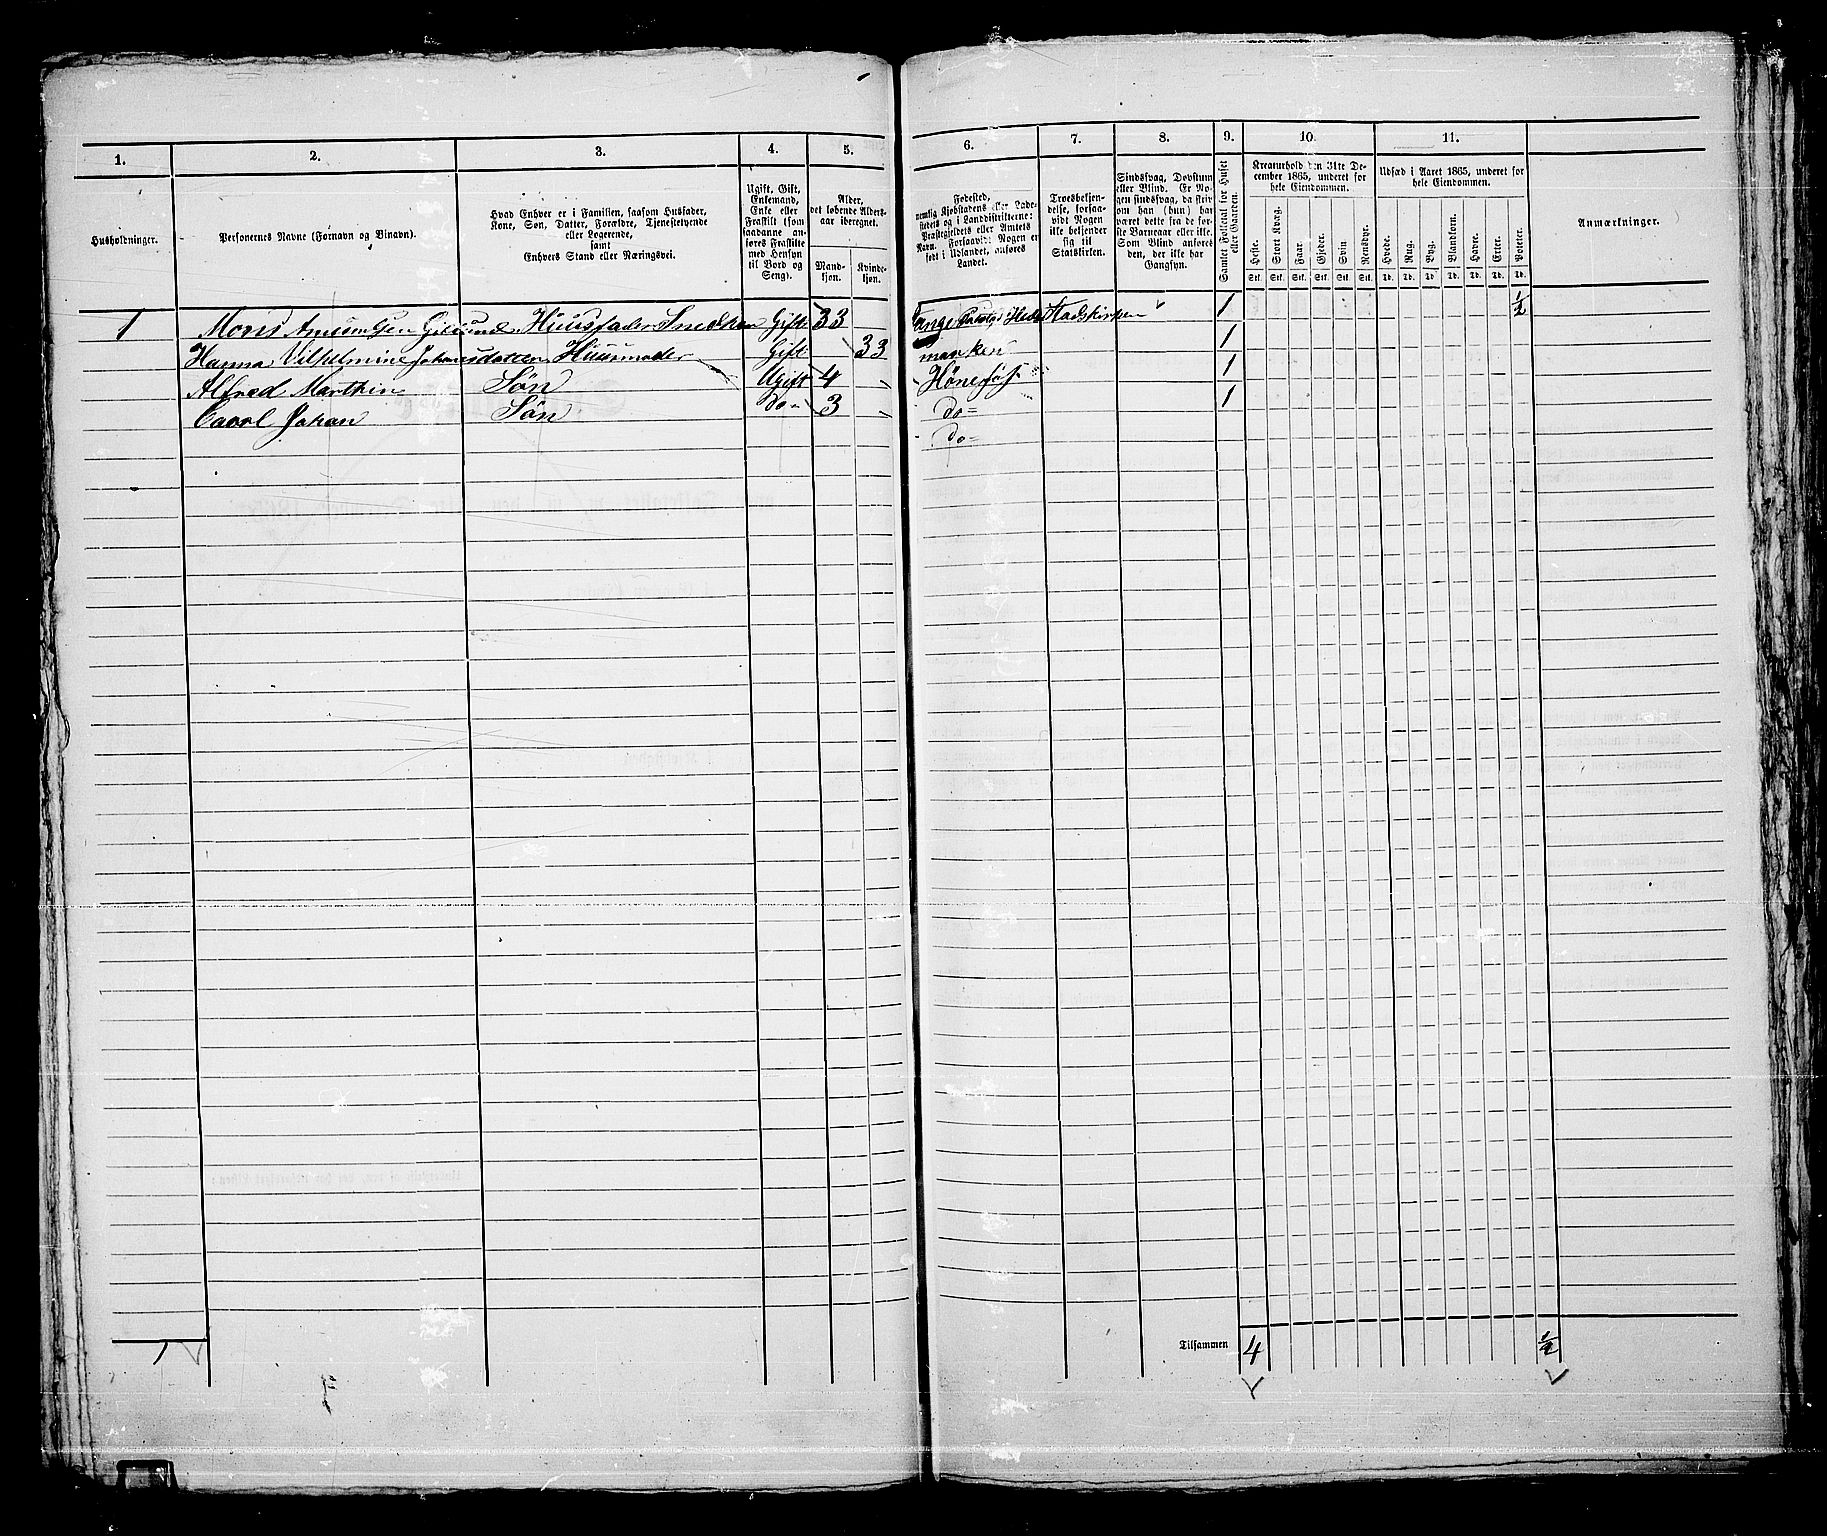 1.
2.
3.
4.
5.
6.
7.
8.
9.
10.
11.
Husholdninger.
Personernes Navne (Fornavn og Binavn).
Hvad Enhver er i Familien, saasom Husfader,
Kone, Søn, Datter, Forældre, Tjenestetyende
eller Logerende,
samt
Enhvers Stand eller Næringsvei.
Ugift, Gift,
Enkemand,
Enke eller
Fraskilt (som
saadanne an-
føres Fraskilte
med Hensyn
til Bord og
Seng).
Alder,
det løbende Alders-
aar iberegnet.
Mand-
kjøn.
Kvinde-
kjøn.
Fødested,
nemlig Kjøbstadens eller Lade-
stedets og i Landdistrikterne:
Præstegjeldets eller Amtets
Navn. Forsaavidt Nogen er
født i Udlandet, anføres
Landet.
Troesbekjen-
delse, forsaa-
vidt Nogen
ikke bekjender
sig til
Statskirken.
Sindssvag, Døvstum
eller Blind. Er No-
gen sindssvag, da skriv
om han (hun) har
været dette fra de før-
ste Barneaar eller ikke.
Som Blind anføres
den, der ikke har
Gangsyn.
Samlet Folketal for Huset
eller Gaarden.
Kreaturhold den 31te De-
cember 1865, underet for
hele Eiendommen.
Heste. Stort Kvæg. Faar. Gjeder. Svin Rensdyr.
Stk. Stk. Stk. Stk. Stk. Stk.
Udsæd i Aaret 1865, underet for
hele Eiendommen.
Hvede. Rug. Byg. Blandkorn. Havre. Erter. Poteter.
Td. Td. Td. Td. Td. Td. Td.
Anmærkninger.
1 Moris Huusfader Gift 33 Stadskirken 1 ½
Hanna Vilhelmine Johansdatter Huusmoder Gift 33 1
Alfred Marthin Søn Ugift 4 Hønefos 1
Caarl Johan Søn do 3 do 1
do
Tilsammen 4 ½
1